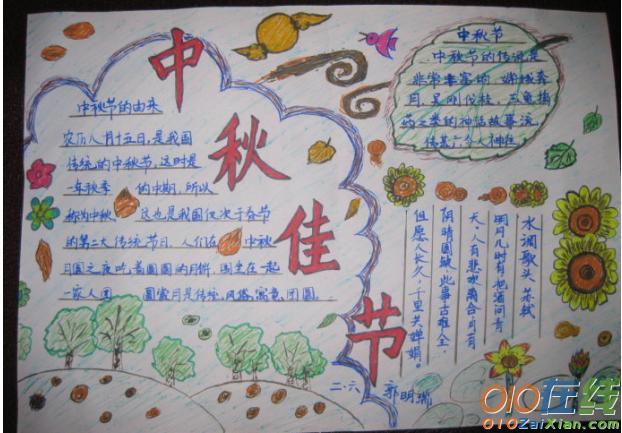 中秋佳节
中秋节的由来
农历八月十五日，是我国
传统的中秋节，这时是
一年秋季 的中期，所以
称为中秋 这也是我国仅次于春节
的第二大传统节日，人们在 中秋
月圆之夜吃着圆圆的月饼，围坐在一起
一家人团 圆赏月是传统，风格，寓意，团圆。
中秋节
中秋节的传说是
非常丰富的，嫦娥奔
月，吴刚伐桂，玉兔捣
药之类的神话故事流
传甚广，令人神往
水调歌头 苏轼
明月几时有把酒问青
天，人有悲欢离合，月有
阴晴圆缺，此事古难全，
但愿人长久，千里共婵娟。
二·六 郭明瑞
010在线
010ZaiXian.Com